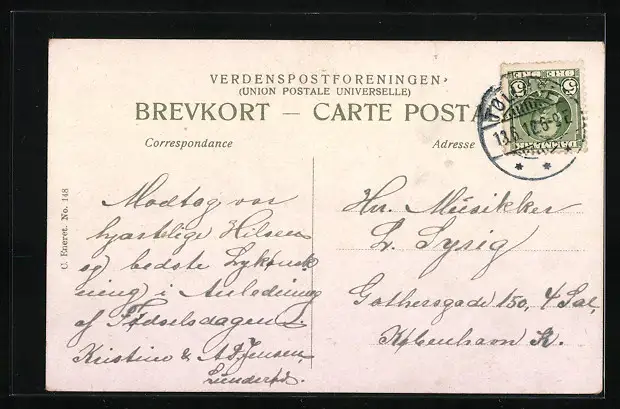 VERDENSPOSTFORENINGEN
(UNION POSTALE UNIVERSELLE)
BREVKORT — CARTE POSTA
Correspondance
Adresse
C. Eneret. No. 148
Modtag vor
hjærtelige Hilsen
og bedste Lykønsk
ning i Anledning
af Fødselsdagen
Kristine & A Jensen
Hr. Musikker
L. Syrig
Gothersgade 150, 4 Sal,
København K.
5
13.6.1